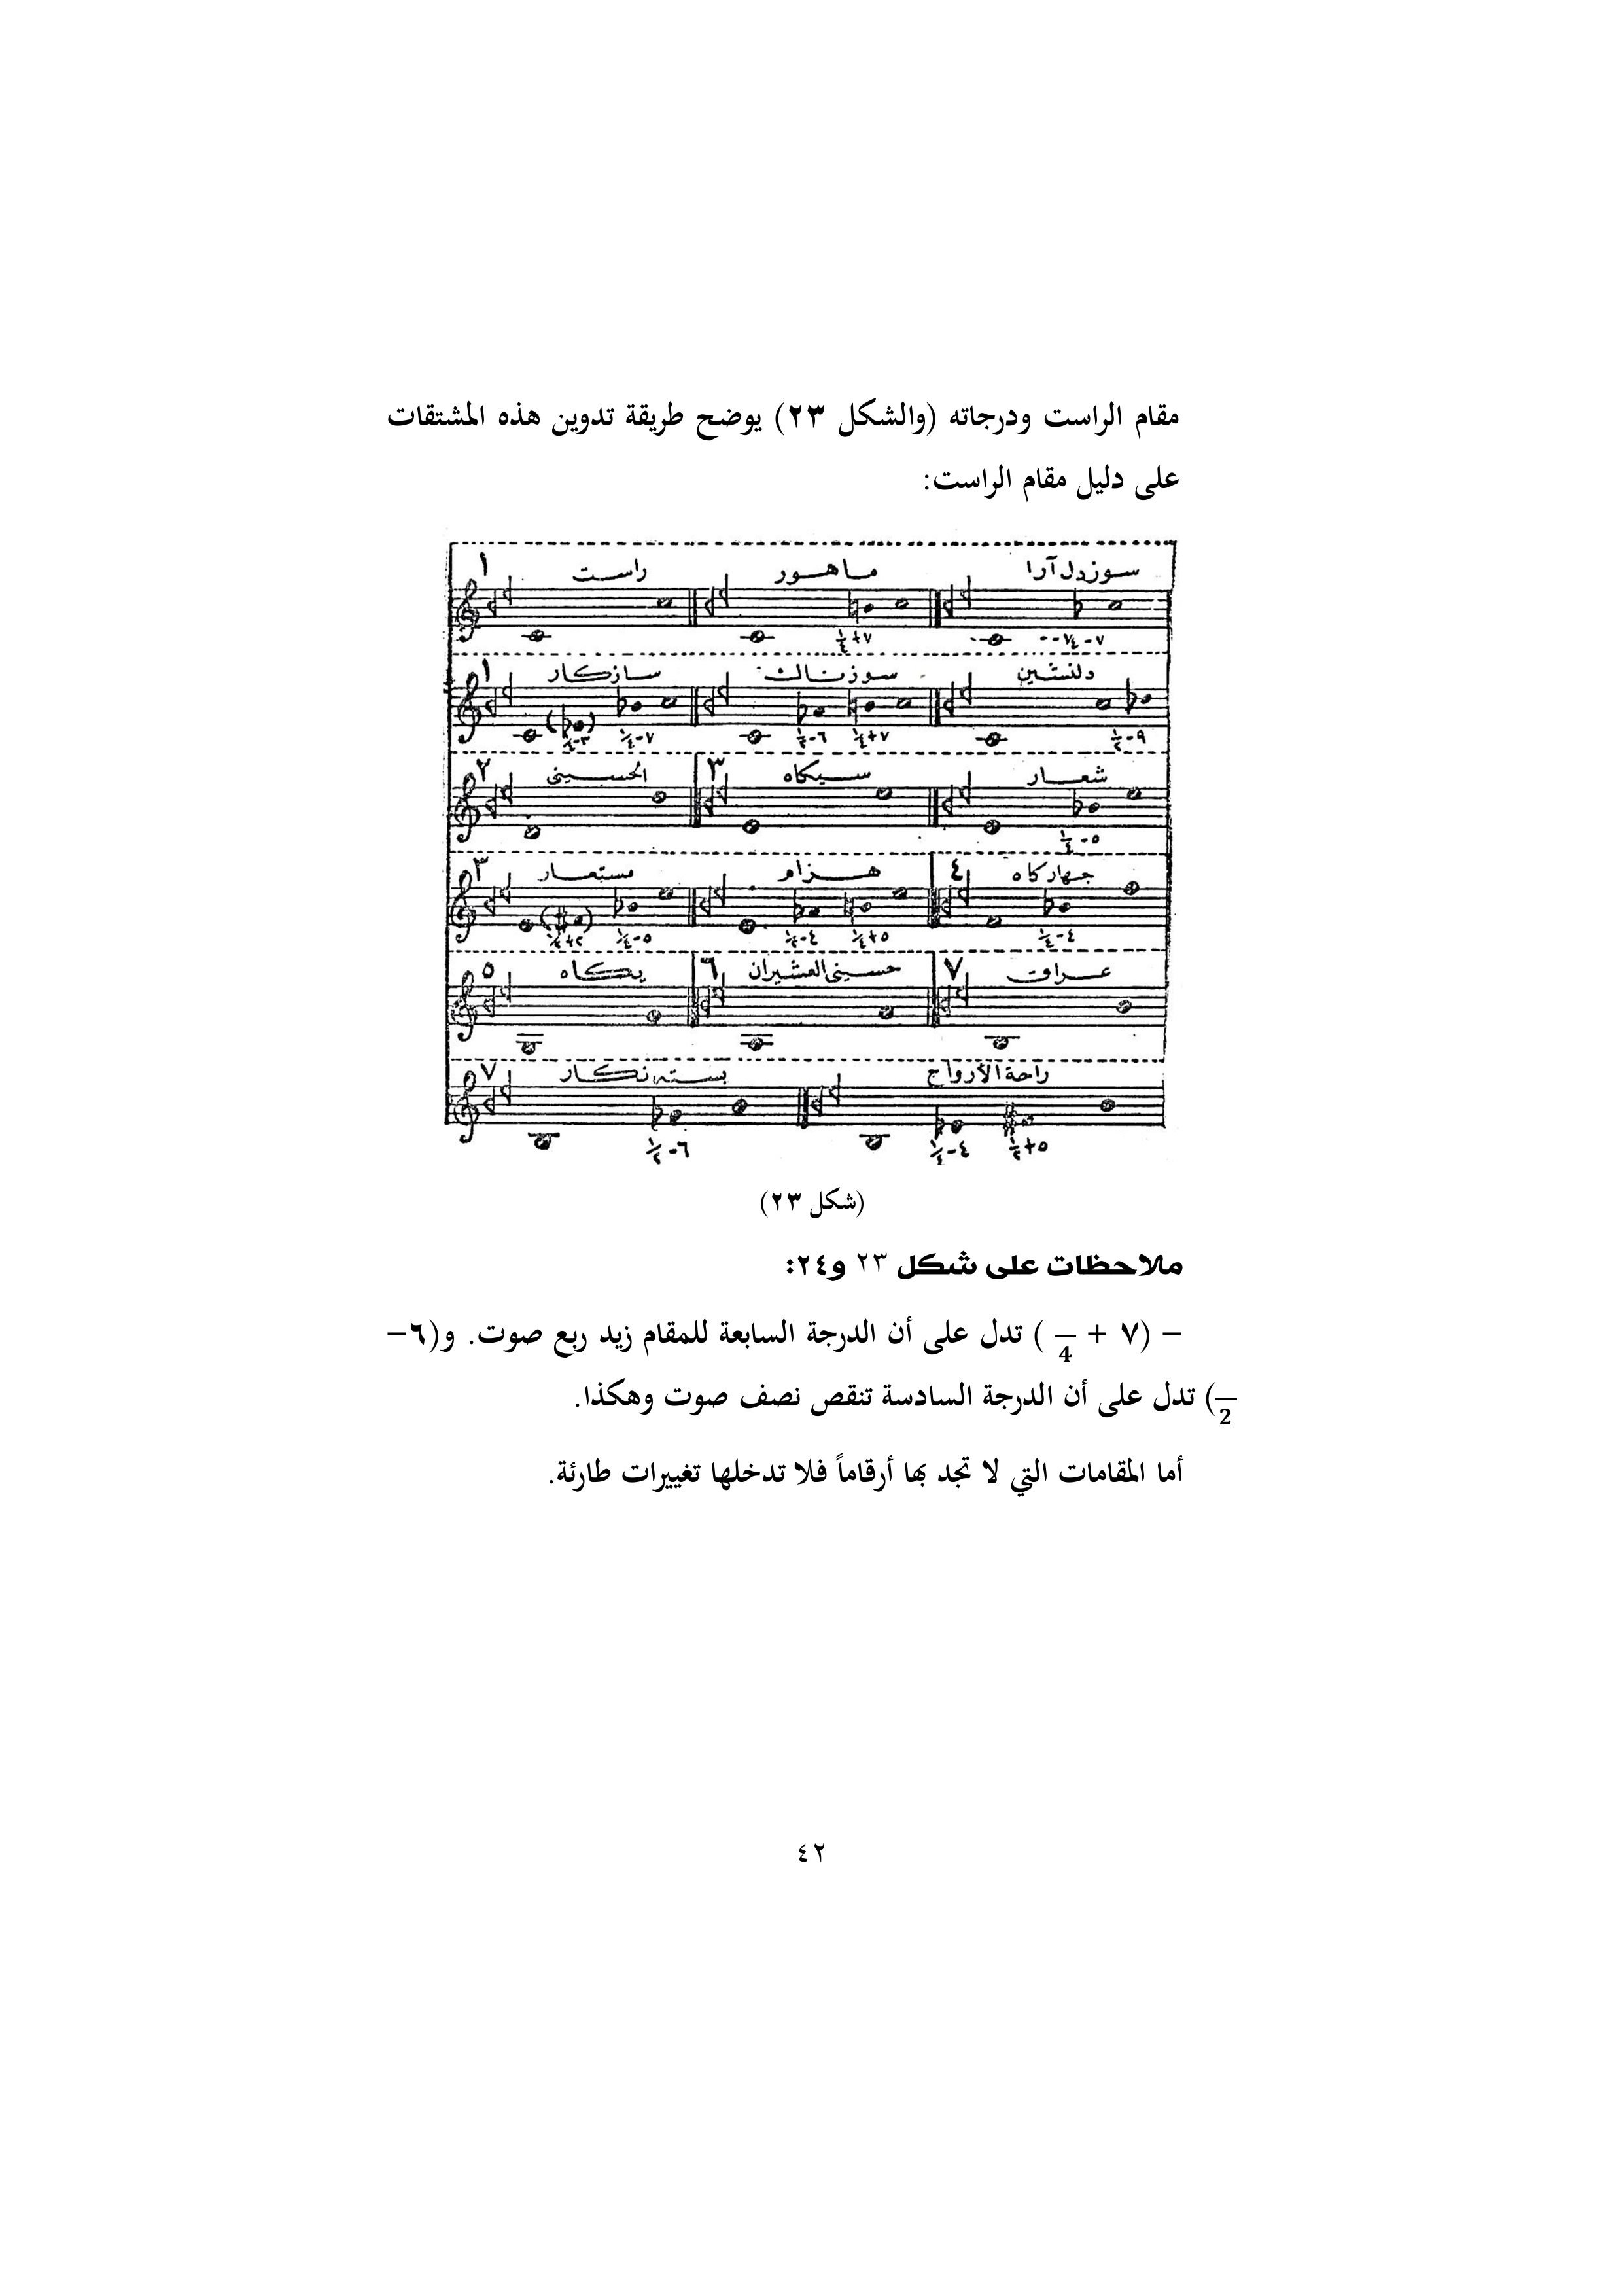 مقام الراست ودرجاته (والشكل ٢٣) يوضح طريقة تدوين هذه المشتقات
على دليل مقام الراست:
١ راست ماهور سوزدل آرا
٧+¼ ٧-¼
١ سازكار سوزناك دلنشين
٣-¼ ٧-¼ ٦-½ ٧+¼ ٩-½
٢ الحسيني ٣ سيكاه شعار
٥-¼
٣ مستعار هزام ٤ جهاركاه
٢+½ ٥-¼ ٤-½ ٥+¼ ٤-¼
٥ يكاه ٦ حسيني العشيران ٧ عراق
٧ بسته نكار راحة الأرواح
٦-½ ٤-½ ٥+½
(شكل ٢٣)
ملاحظات على شكل ٢٣ و٢٤:
– (٧ + —4 ) تدل على أن الدرجة السابعة للمقام زيد ربع صوت. و(٦–
—2) تدل على أن الدرجة السادسة تنقص نصف صوت وهكذا.
أما المقامات التي لا تجد بها أرقاماً فلا تدخلها تغييرات طارئة.
٤٢